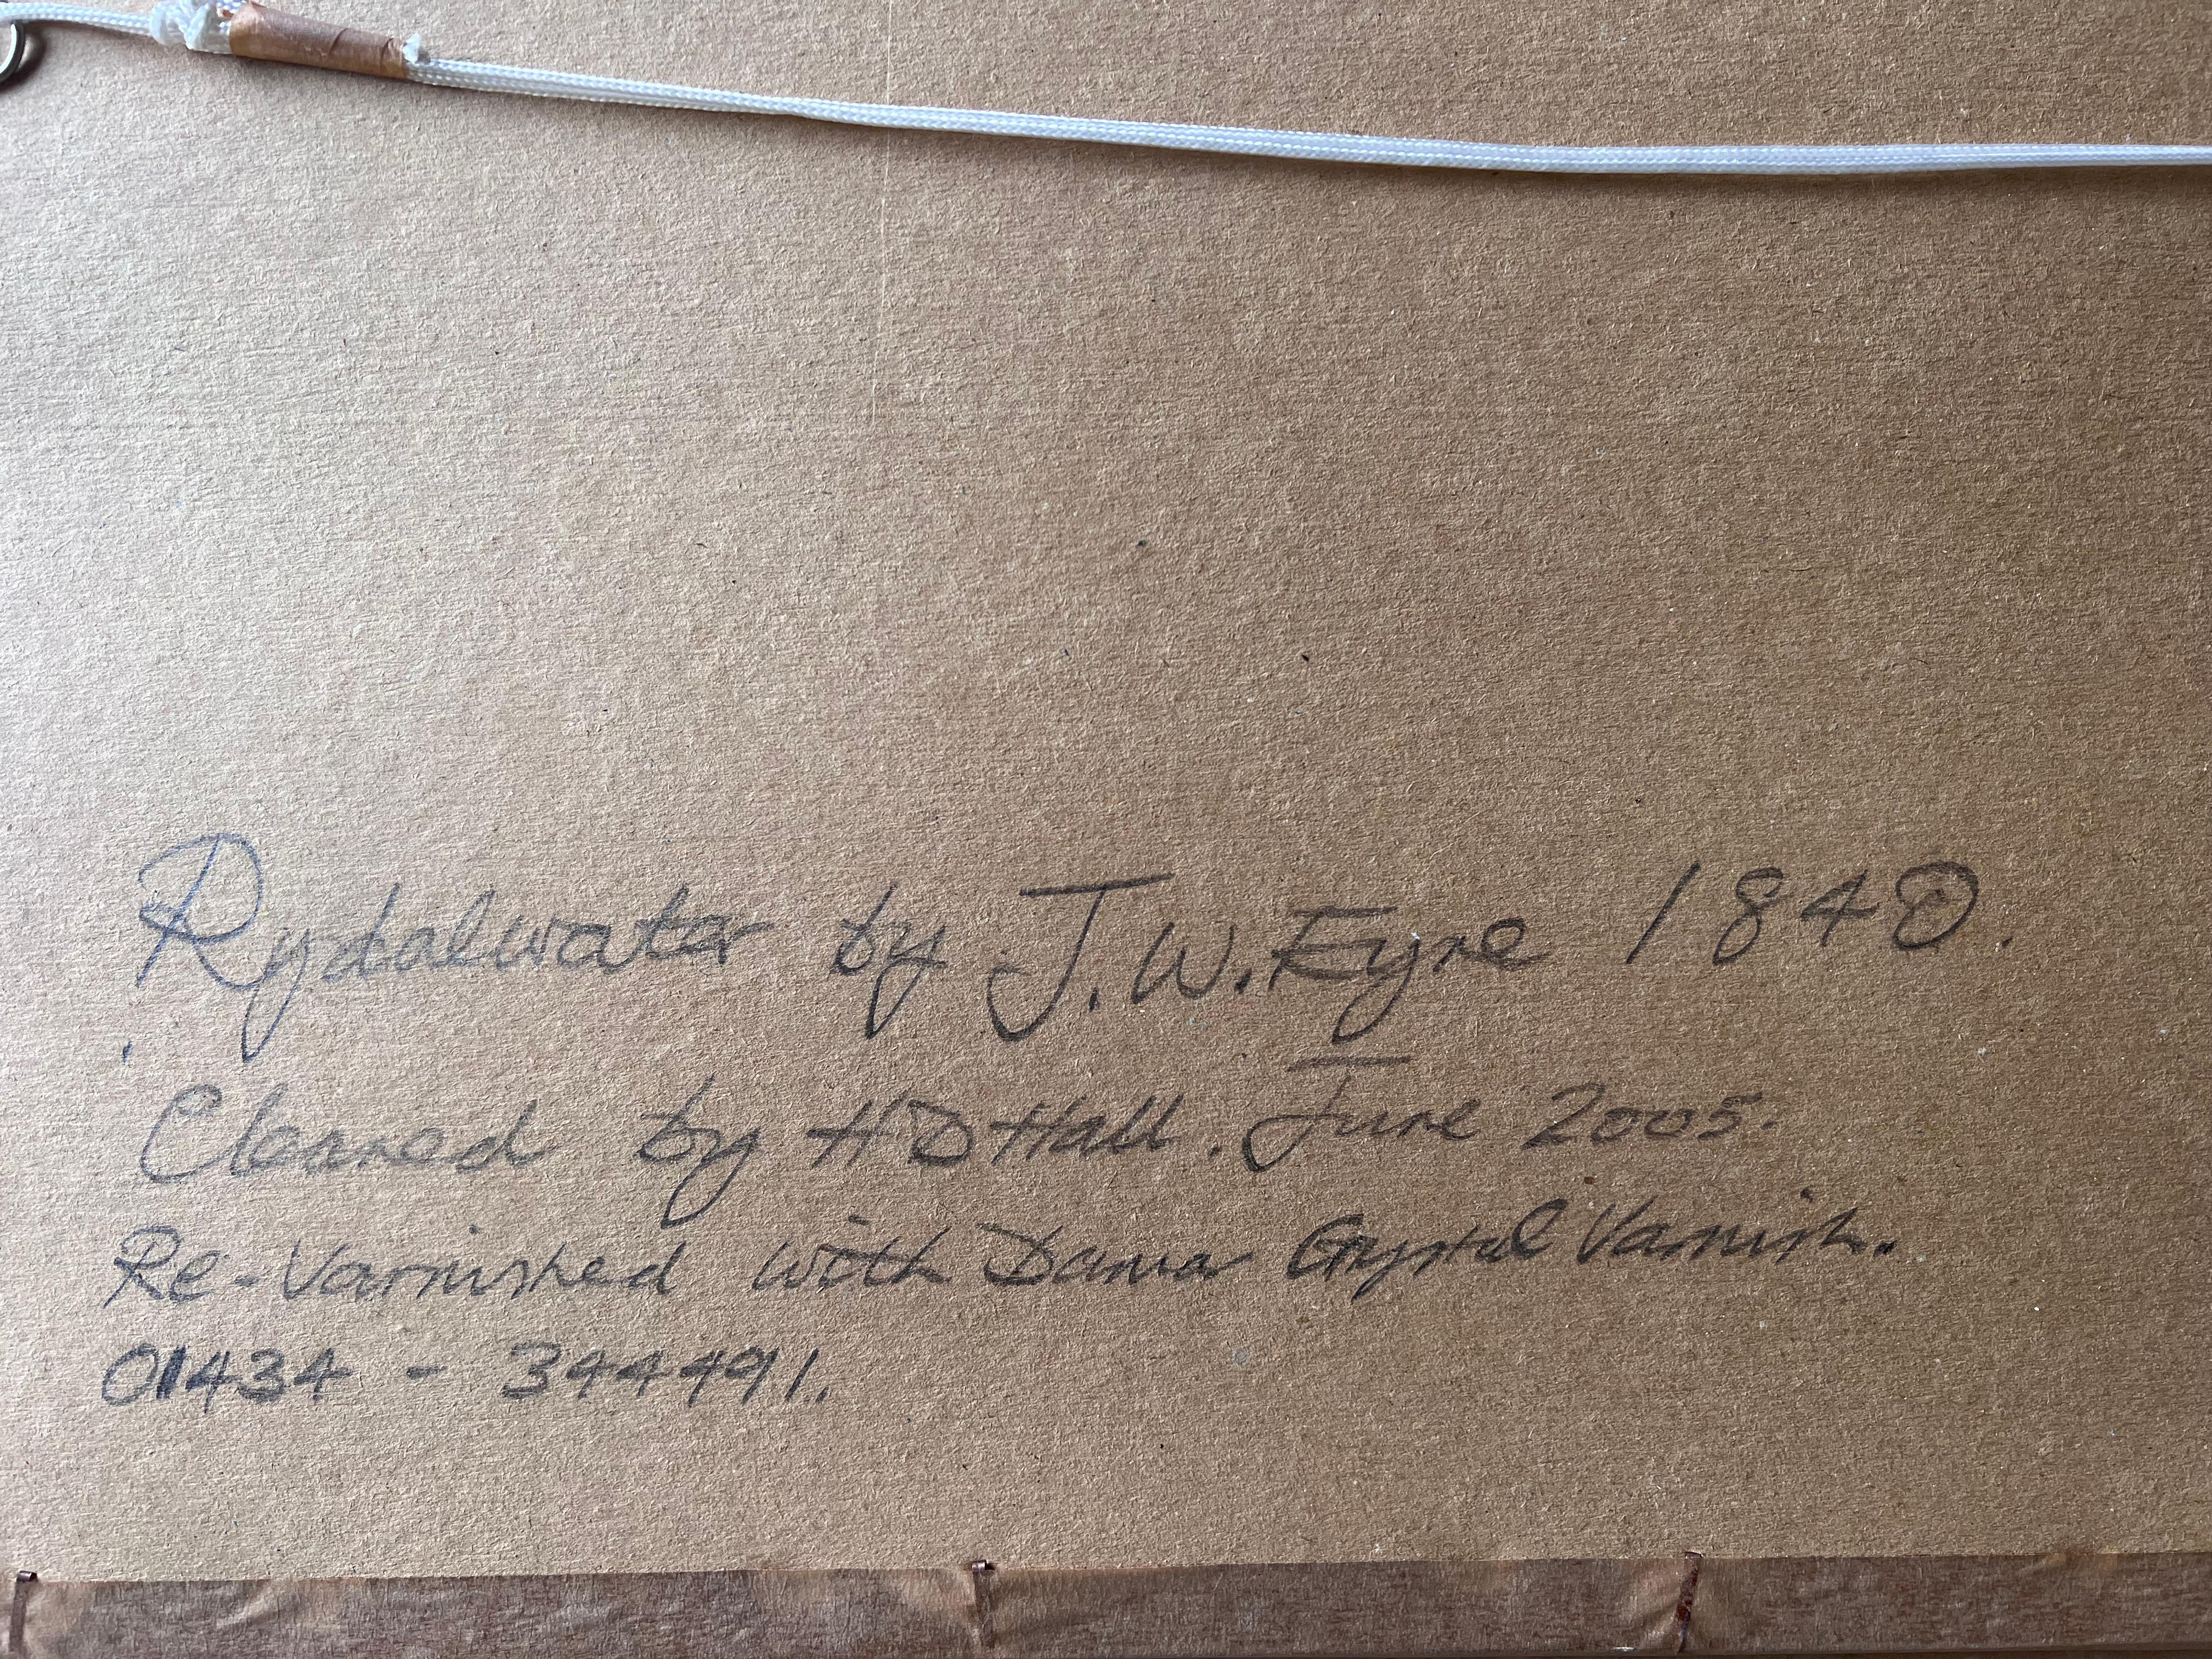 Rydalwater by J.W. Eyre 1840.
Cleaned by H D Hall. June 2005.
Re-Varnished with Damar Crystal Varnish.
01434 - 344491..